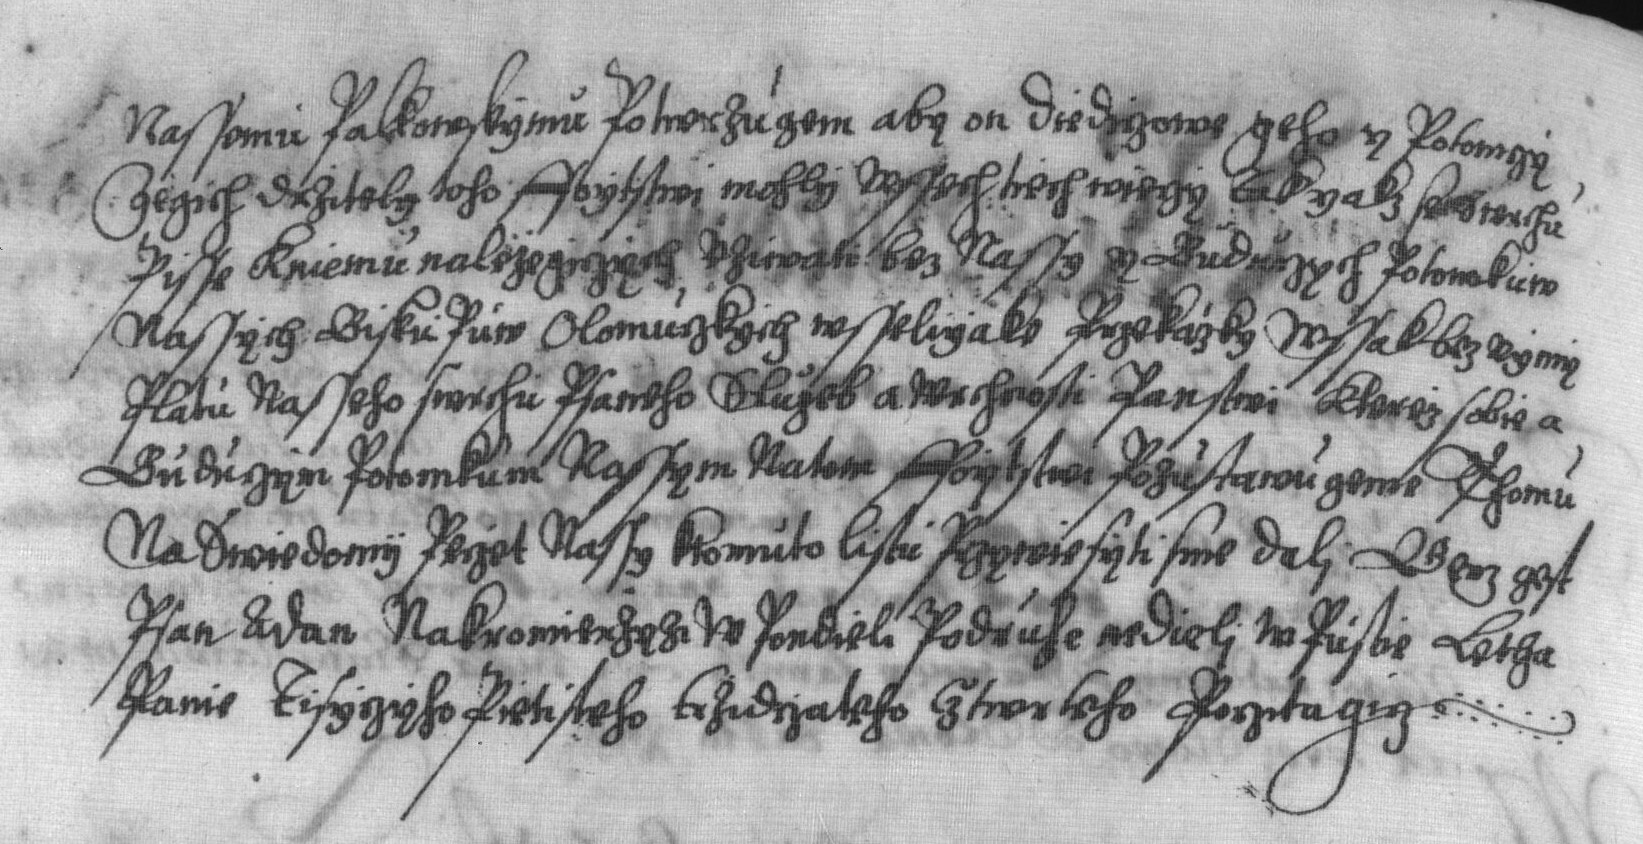 Nassemu Palkowskymu Potwrzugem aby on diediczowe geho y Potomczy
Gegich drzitely toho ffoytstwi mohly wssech tiech wieczy tak yakz se swrchu
Pisse kniemu nalezegiczych vziwati bez Nassy y Buduczych Potomkuw
Nassych Biskupuw Olomuczkych wsseliyake Przekazky wssak bez vymy
Platu Nasseho swrchu Psaneho Sluzeb a wrchnosti Panstwi kterez sobie a
Buduczym Potomkum Nassym Natom ffoytstwi Pozustawugeme Thomu
Na Swiedomij Peczet Nassy ktomuto listu Przywiesyti sme dalj Genz gest
Psan a dan Nakromierzyzi w Pondieli Podruhe nedieli w Pustie Letha
Panie Tisyczyho Pietisteho trzidczateho cztwrteho Pocztagicz